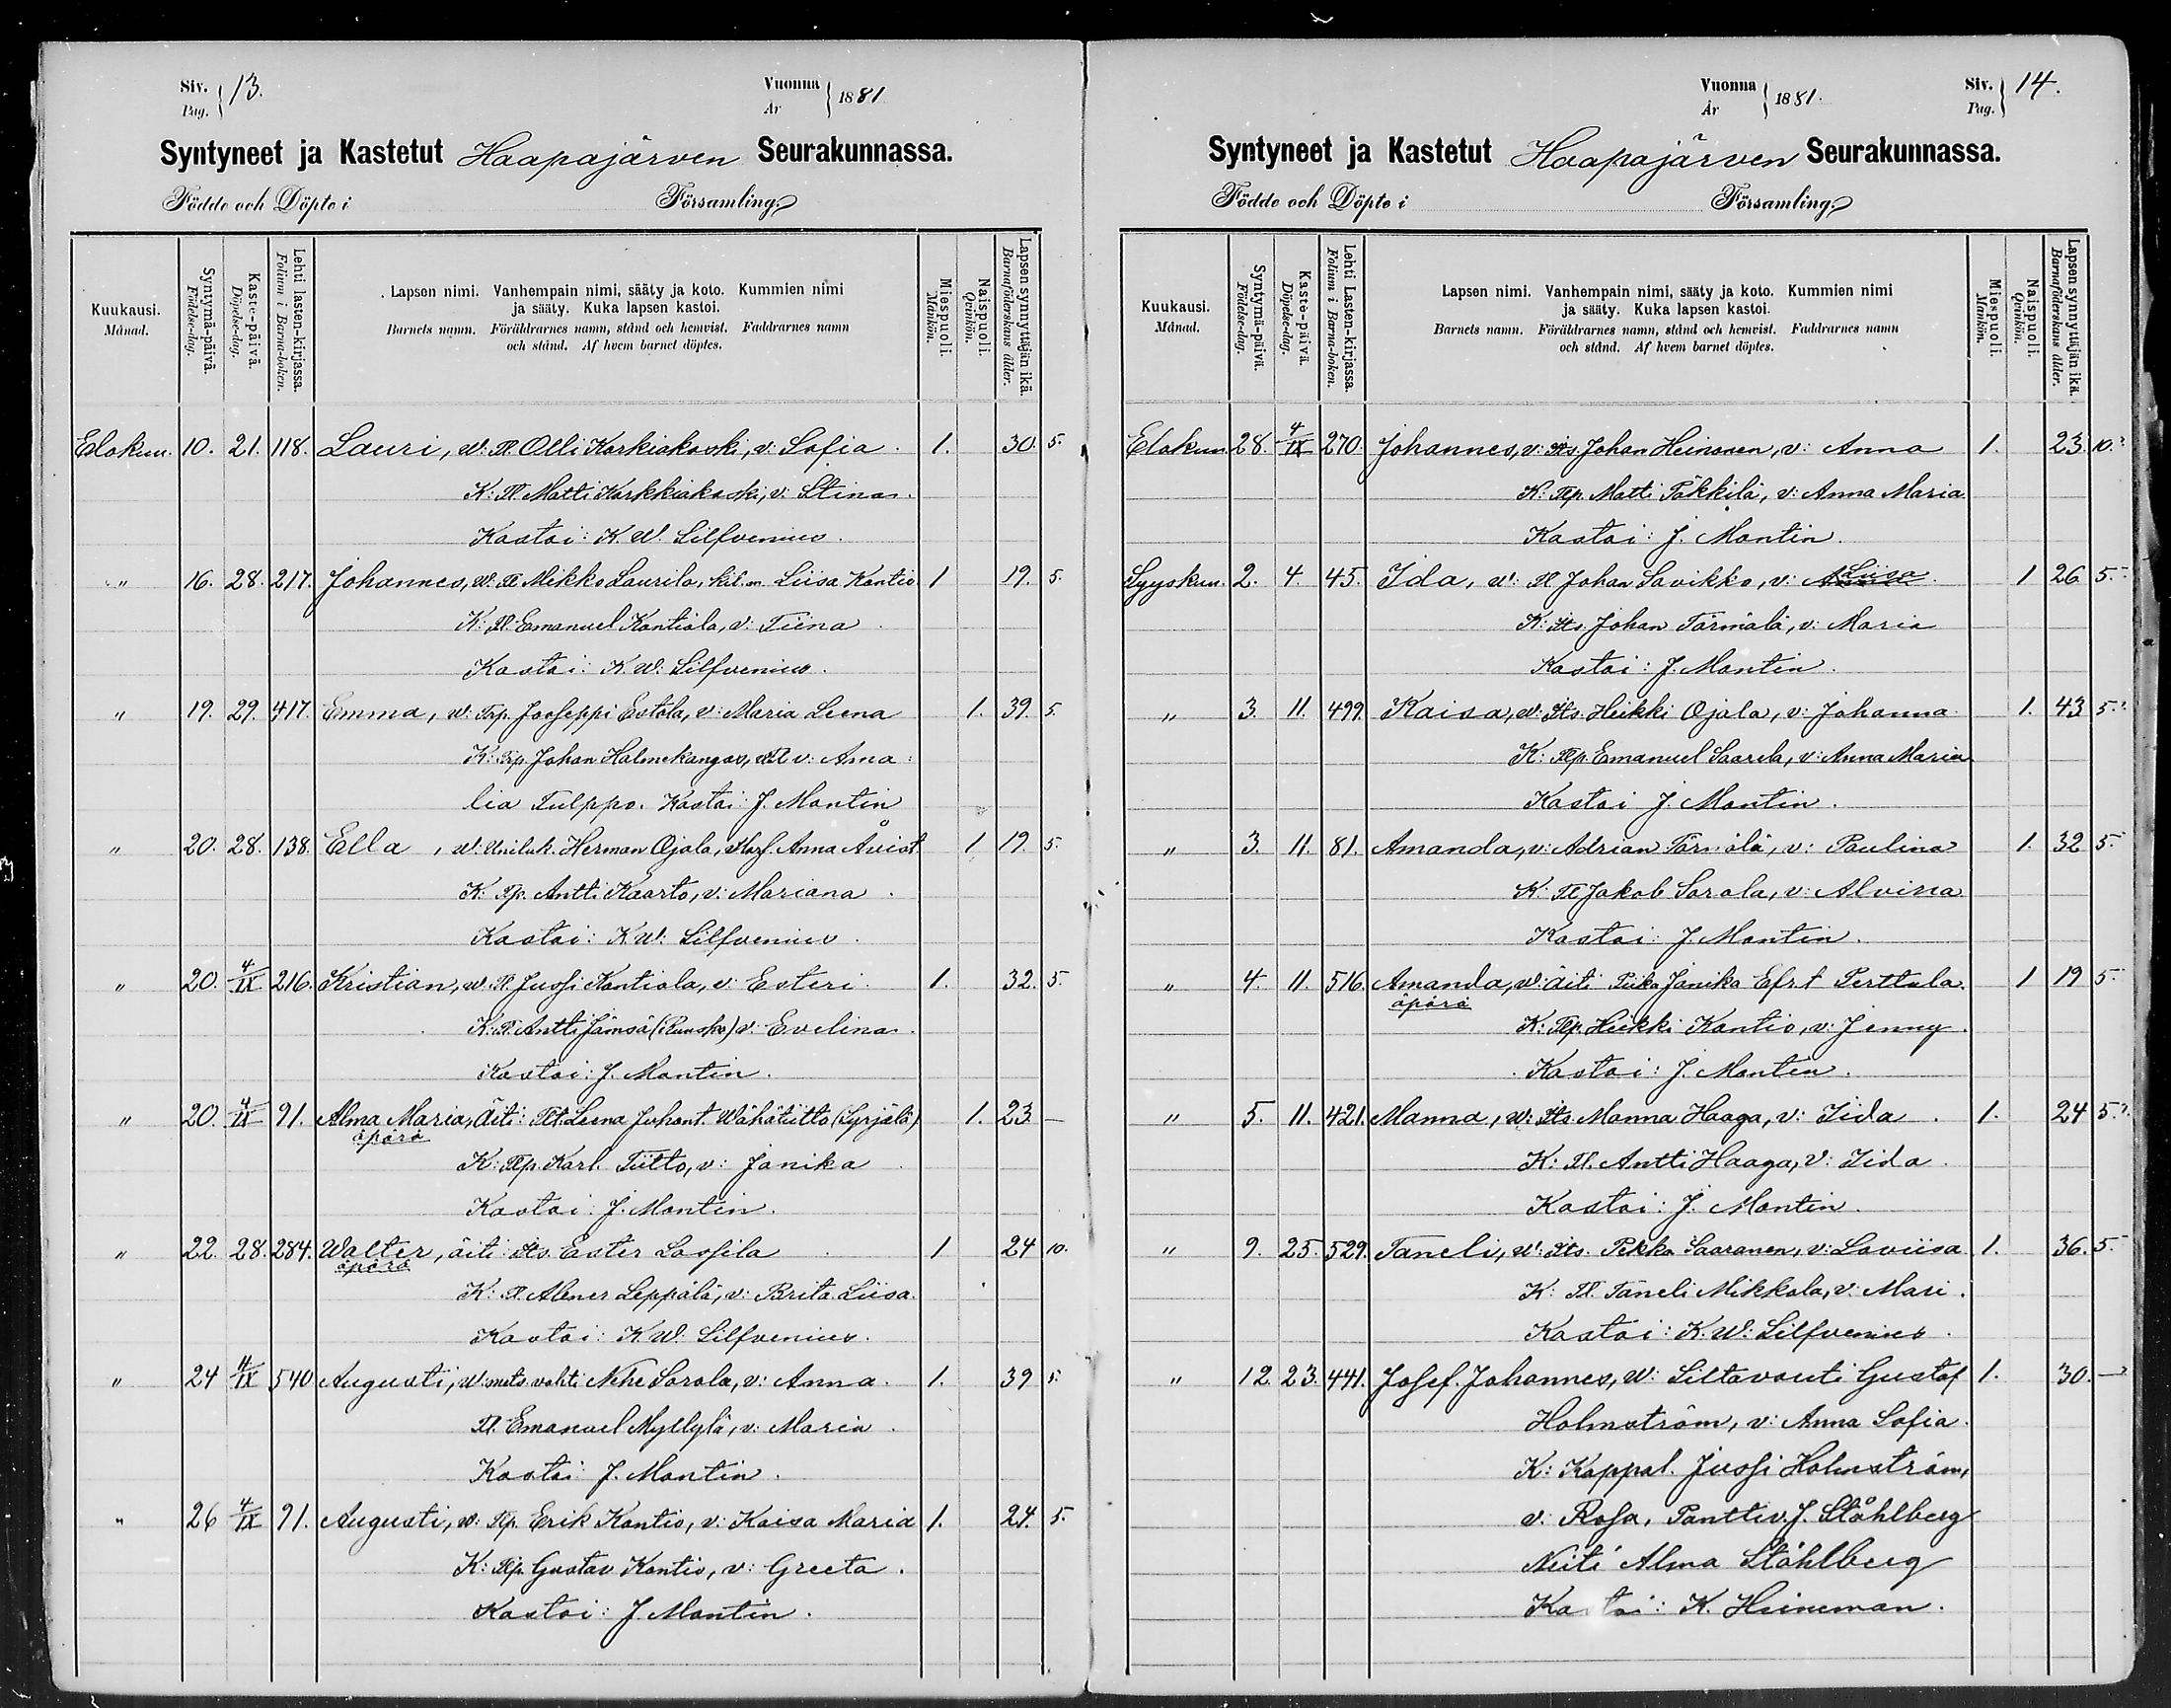 Siv. Pag. 13.
Vuonna År 1881
Syntyneet ja Kastetut Haapajärven Seurakunnassa.
Födde och Döpte i Församling.
Kuukausi. Månad.
Syntymä-päivä. Födelse-dag.
Kaste-päivä. Döpelse-dag.
Lehti lasten-kirjassa. Folium i Barna-boken.
Lapsen nimi. Vanhempain nimi, sääty ja koto. Kummien nimi
ja sääty. Kuka lapsen kastoi.
Barnets namn. Föräldrarnes namn, stånd och hemvist. Faddrarnes namn
och stånd. Af hvem barnet döptes.
Miespuoli. Mankön.
Naispuoli. Qvinkön.
Lapsen synnyttäjän ikä. Barnaföderskans ålder.
Elokuu. 10. 21. 118. Lauri, w: Tl. Olli Karkiakoski, v: Sofia. 1. 30. 5.
K: Tl Matti Karkkiakoski, v: Stina.
Kastoi: K. W. Silfvenius.
" 16. 28. 217. Johannes, w: Tl Mikko Laurila, kil. m Liisa Kantio 1 19. 5.
K: Tl. Emanuel Kantiola, v: Tiina
Kastoi: K. W. Silfvenius.
" 19. 29. 417. Emma, w: Trp. Jooseppi Eatola, v: Maria Leena 1. 39. 5.
K: Trp. Johan Halmekangas, v: Ama
lia Tulppo. Kastoi: J. Montin
" 20. 28. 138. Ella, w: Uniluk. Herman Ojala, Anna Åvist 1 19. 5.
K: Tlp. Antti Kaarto, v: Mariana.
Kastoi: K. W. Silfvenius.
" 20. 4/IX 216. Kristian, w. Tl. Jussi Kantiola, v: Esteri 1. 32. 5.
K: Tl. Antti Jämsä (Runsko) v: Evelina.
Kastoi: J. Montin.
" 20. 4/IX 91. Alma Maria, Äiti: Tlt. Leena Juhont. Wähätiitto (Syrjälä) 1. 23 —
äpärä
K: Tlp. Karl. Tiitto, v: Janika
Kastoi: J. Montin.
" 22. 28. 284. Walter, äiti: Its. Ester Lassila 1 24 10.
äpärä
K: Tl. Abner Leppälä, v: Brita Liisa.
Kastoi: K. W. Silfvenius.
" 24 11/IX 540 Augusti, w: mets. vahti Sarola, v: Anna. 1. 39 5.
Tl. Emanuel Myllylä, v: Maria.
Kastoi J. Montin.
" 26 4/IX 91. Augusti, w: Tlp. Erik Kantio, v: Kaisa Maria 1. 24. 5.
K: Tlp. Gustav Kantio, v: Greeta.
Kastoi: J Montin.
Vuonna År 1881.
Siv. Pag. 14.
Syntyneet ja Kastetut Haapajärven Seurakunnassa.
Födde och Döpte i Församling.
Kuukausi. Månad.
Syntymä-päivä. Födelse-dag.
Kaste-päivä. Döpelse-dag.
Lehti Lasten-kirjassa. Folium i Barna-boken.
Lapsen nimi. Vanhempain nimi, sääty ja koto. Kummien nimi
ja sääty. Kuka lapsen kastoi.
Barnets namn. Föräldrarnes namn, stånd och hemvist. Faddrarnes namn
och stånd. Af hvem barnet döptes.
Miespuoli. Mankön.
Naispuoli. Qvinkön.
Lapsen synnyttäjän ikä. Barnaföderskans ålder.
Elokuu 28. 4/IX 270. Johannes, v: Its. Johan Heinonen, v: Anna 1. 23. 10.
K: Tlp. Matti Päkkilä, v: Anna Maria.
Kastoi: J. Montin.
Syyskuu. 2. 4 45. Ida, w: Tl Johan Savikko, v: Liisa. 1 26 5.
K: Its. Johan Törmälä, v: Maria
Kastoi: J. Montin.
" 3. 11. 499. Kaisa, w: Its. Heikki Ojala, v: Johanna. 1. 43 5.
K: Tlp. Emanuel Saarela, v: Anna Maria
Kastoi J. Montin.
" 3. 11. 81. Amanda, v: Adrian Törmälä, v: Paulina 1. 32 5.
K: Tl Jakob Sorola, v: Alvina
Kastoi: J Montin.
" 4. 11. 516. Amanda, w: äiti Piika Janika Efr.t Perttula. 1 19 5.
äpärä
K: Tlp. Heikki Kantio, v: Jenny.
Kastoi: J. Montin.
" 5. 11. 421. Manna, w: Its. Manna Haaga, v: Iida. 1. 24 5.
K: Tl. Antti Haaga, v: Iida.
Kastoi: J. Montin.
" 9. 25. 529. Taneli, w: Its. Pekka Saaranen, v: Loviisa 1. 36. 5.
K: Tl. Taneli Mikkola, v: Mari.
Kastoi: K. W. Silfvenius.
" 12. 23. 441. Josef Johannes, w: Siltavouti Gustaf 1. 30. —
Holmström, v: Anna Sofia.
K: Kappal. Jussi Holmström,
v: Rosa, Panttiv. J. Ståhlberg
Neiti Alma Ståhlberg
Kastoi: K. Heineman.